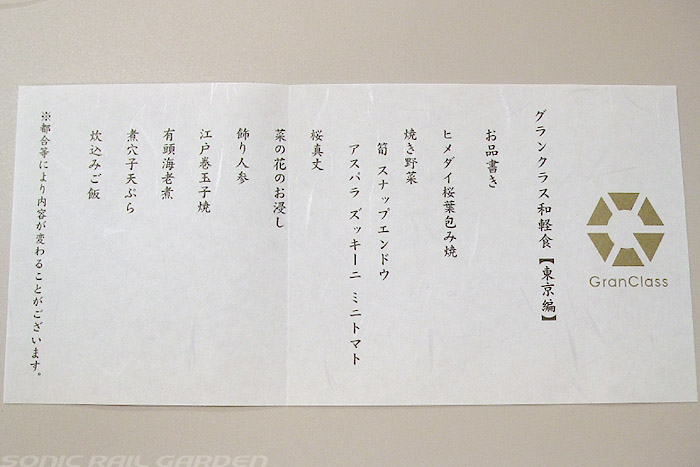 GranClass
グランクラス和軽食【東京編】
お品書き
ヒメダイ桜葉包み焼
焼き野菜
筍 スナップエンドウ
アスパラ ズッキーニ ミニトマト
桜真丈
菜の花のお浸し
飾り人参
江戸巻玉子焼
有頭海老煮
煮穴子天ぷら
炊込みご飯
※都合等により内容が変わることがございます。
SONIC RAIL GARDEN